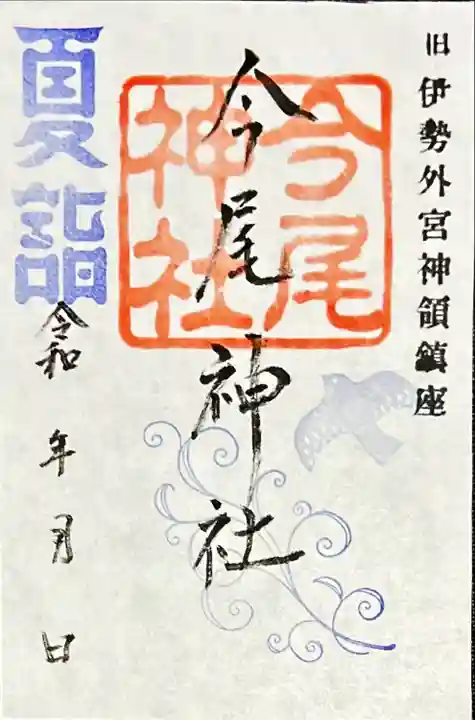 旧伊勢外宮神領鎮座
今尾神社
今尾神社
夏詣
令和 年 月 日